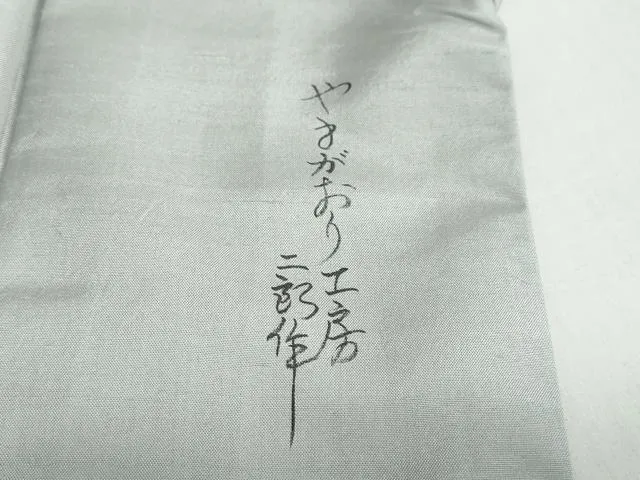 やまがおり工房
二郎作